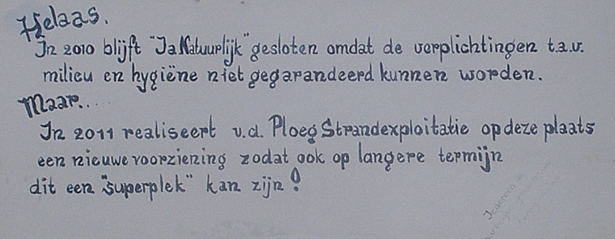 Helaas.
In 2010 blijft "Ja Natuurlijk" gesloten omdat de verplichtingen t.a.v.
milieu en hygiëne niet gegarandeerd kunnen worden.
Maar....
In 2011 realiseert v.d. Ploeg Strandexploitatie op deze plaats
een nieuwe voorziening zodat ook op langere termijn
dit een "superplek" kan zijn!